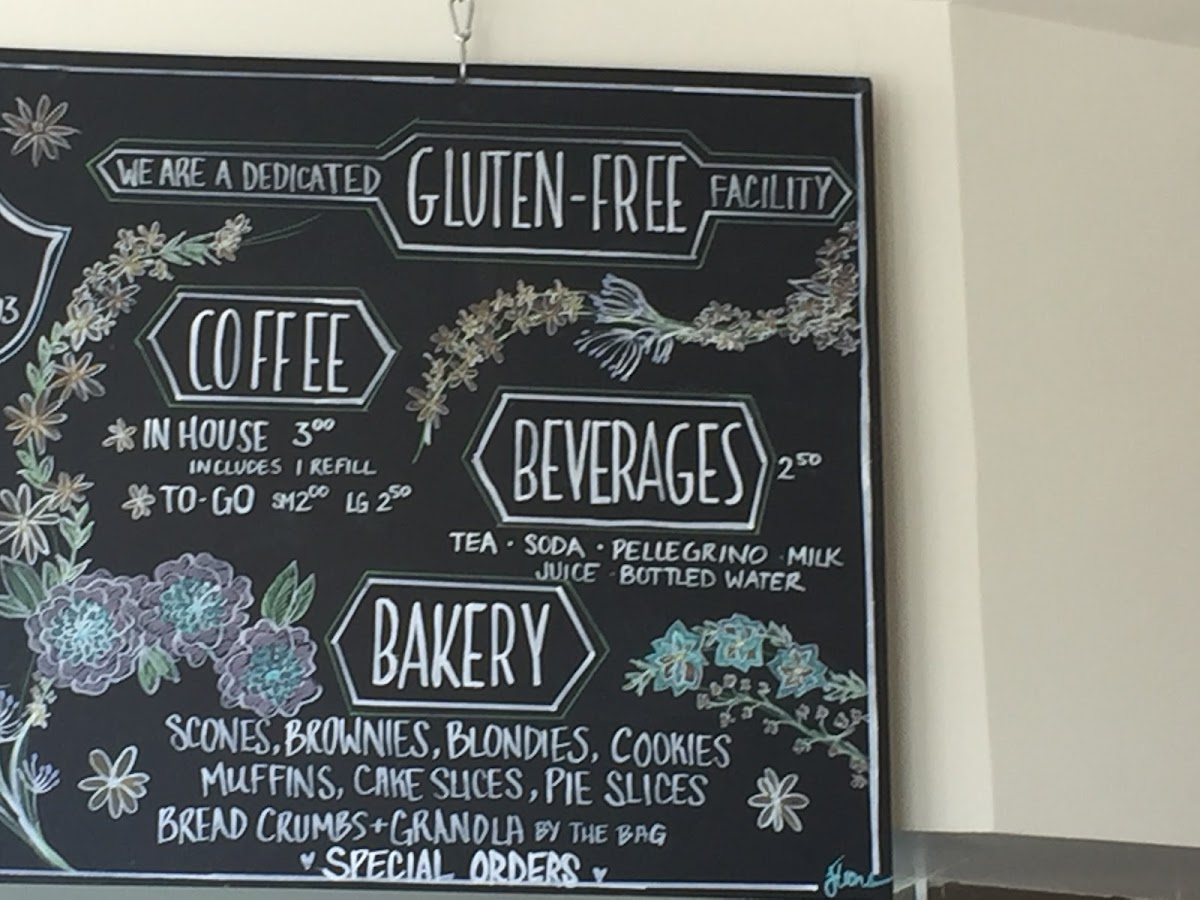 WE ARE A DEDICATED GLUTEN-FREE FACILITY
COFFEE
IN HOUSE 3⁰⁰
INCLUDES 1 REFILL
TO-GO SM 2⁰⁰ LG 2⁵⁰
BEVERAGES 2⁵⁰
TEA · SODA · PELLEGRINO · MILK
JUICE · BOTTLED WATER
BAKERY
SCONES, BROWNIES, BLONDIES, COOKIES
MUFFINS, CAKE SLICES, PIE SLICES
BREAD CRUMBS + GRANOLA BY THE BAG
SPECIAL ORDERS